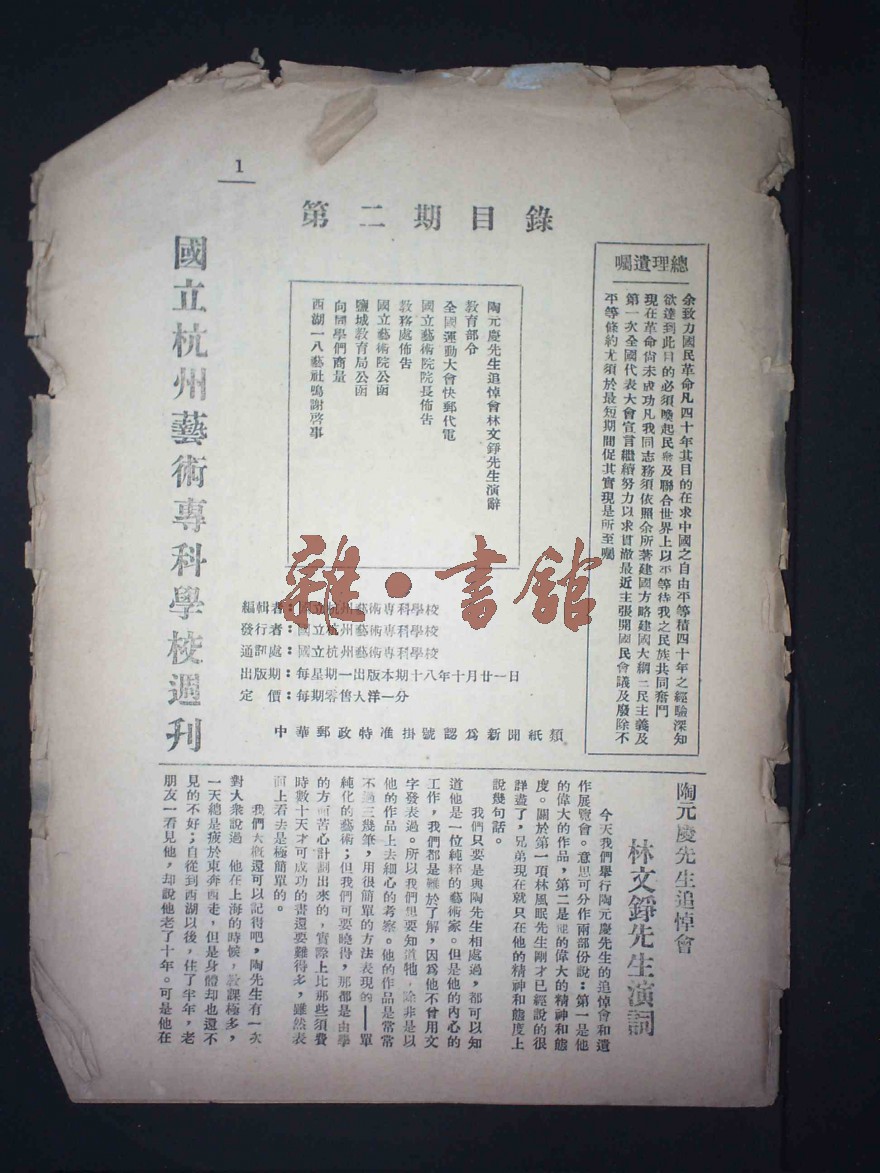 1
國立杭州藝術專科學校週刊
第二期目錄
總理遺囑
余致力國民革命凡四十年其目的在求中國之自由平等積四十年之經驗深知
欲達到此目的必須喚起民衆及聯合世界上以平等待我之民族共同奮鬥
現在革命尙未成功凡我同志務須依照余所著建國方略建國大綱三民主義及
第一次全國代表大會宣言繼續努力以求貫澈最近主張開國民會議及廢除不
平等條約尤須於最短期間促其實現是所至囑
陶元慶先生追悼會林文錚先生演辭
教育部令
全國運動大會快郵代電
國立藝術院院長佈告
教務處佈告
國立藝術院公函
鹽城教育局公函
向同學們商量
西湖一八藝社鳴謝啓事
雜·書館
編輯者：國立杭州藝術專科學校
發行者：國立杭州藝術專科學校
通訊處：國立杭州藝術專科學校
出版期：每星期一出版本期十八年十月廿一日
定　價：每期零售大洋一分
中華郵政特准掛號認爲新聞紙類
陶元慶先生追悼會
林文錚先生演詞
今天我們舉行陶元慶先生的追悼會和遺
作展覽會。意思可分作兩部份說：第一是他
的偉大的作品，第二是他的偉大的精神和態
度。關於第一項林風眠先生剛才已經說的很
詳盡了，兄弟現在就只在他的精神和態度上
說幾句話。
我們只要是與陶先生相處過，都可以知
道他是一位純粹的藝術家。但是他的內心的
工作，我們都是難於了解，因爲他不曾用文
字發表過。所以我們想要知道牠，除非是以
他的作品上去細心的考察。他的作品是常常
不過三幾筆，用很簡單的方法表現的——單
純化的藝術；但我們可要曉得，那都是由學
的方面苦心計劃出來的，實際上比那些須費
時數十天才可成功的畫還要難得多，雖然表
面上看去是極簡單的。
我們大概還可以記得吧，陶先生有一次
對人衆說過　他在上海的時候，教課極多，
一天總是疲於東奔西走，但是身體却也還不
見的不好；自從到西湖以後，住了半年，老
朋友一看見他，却說他老了十年。可是他在